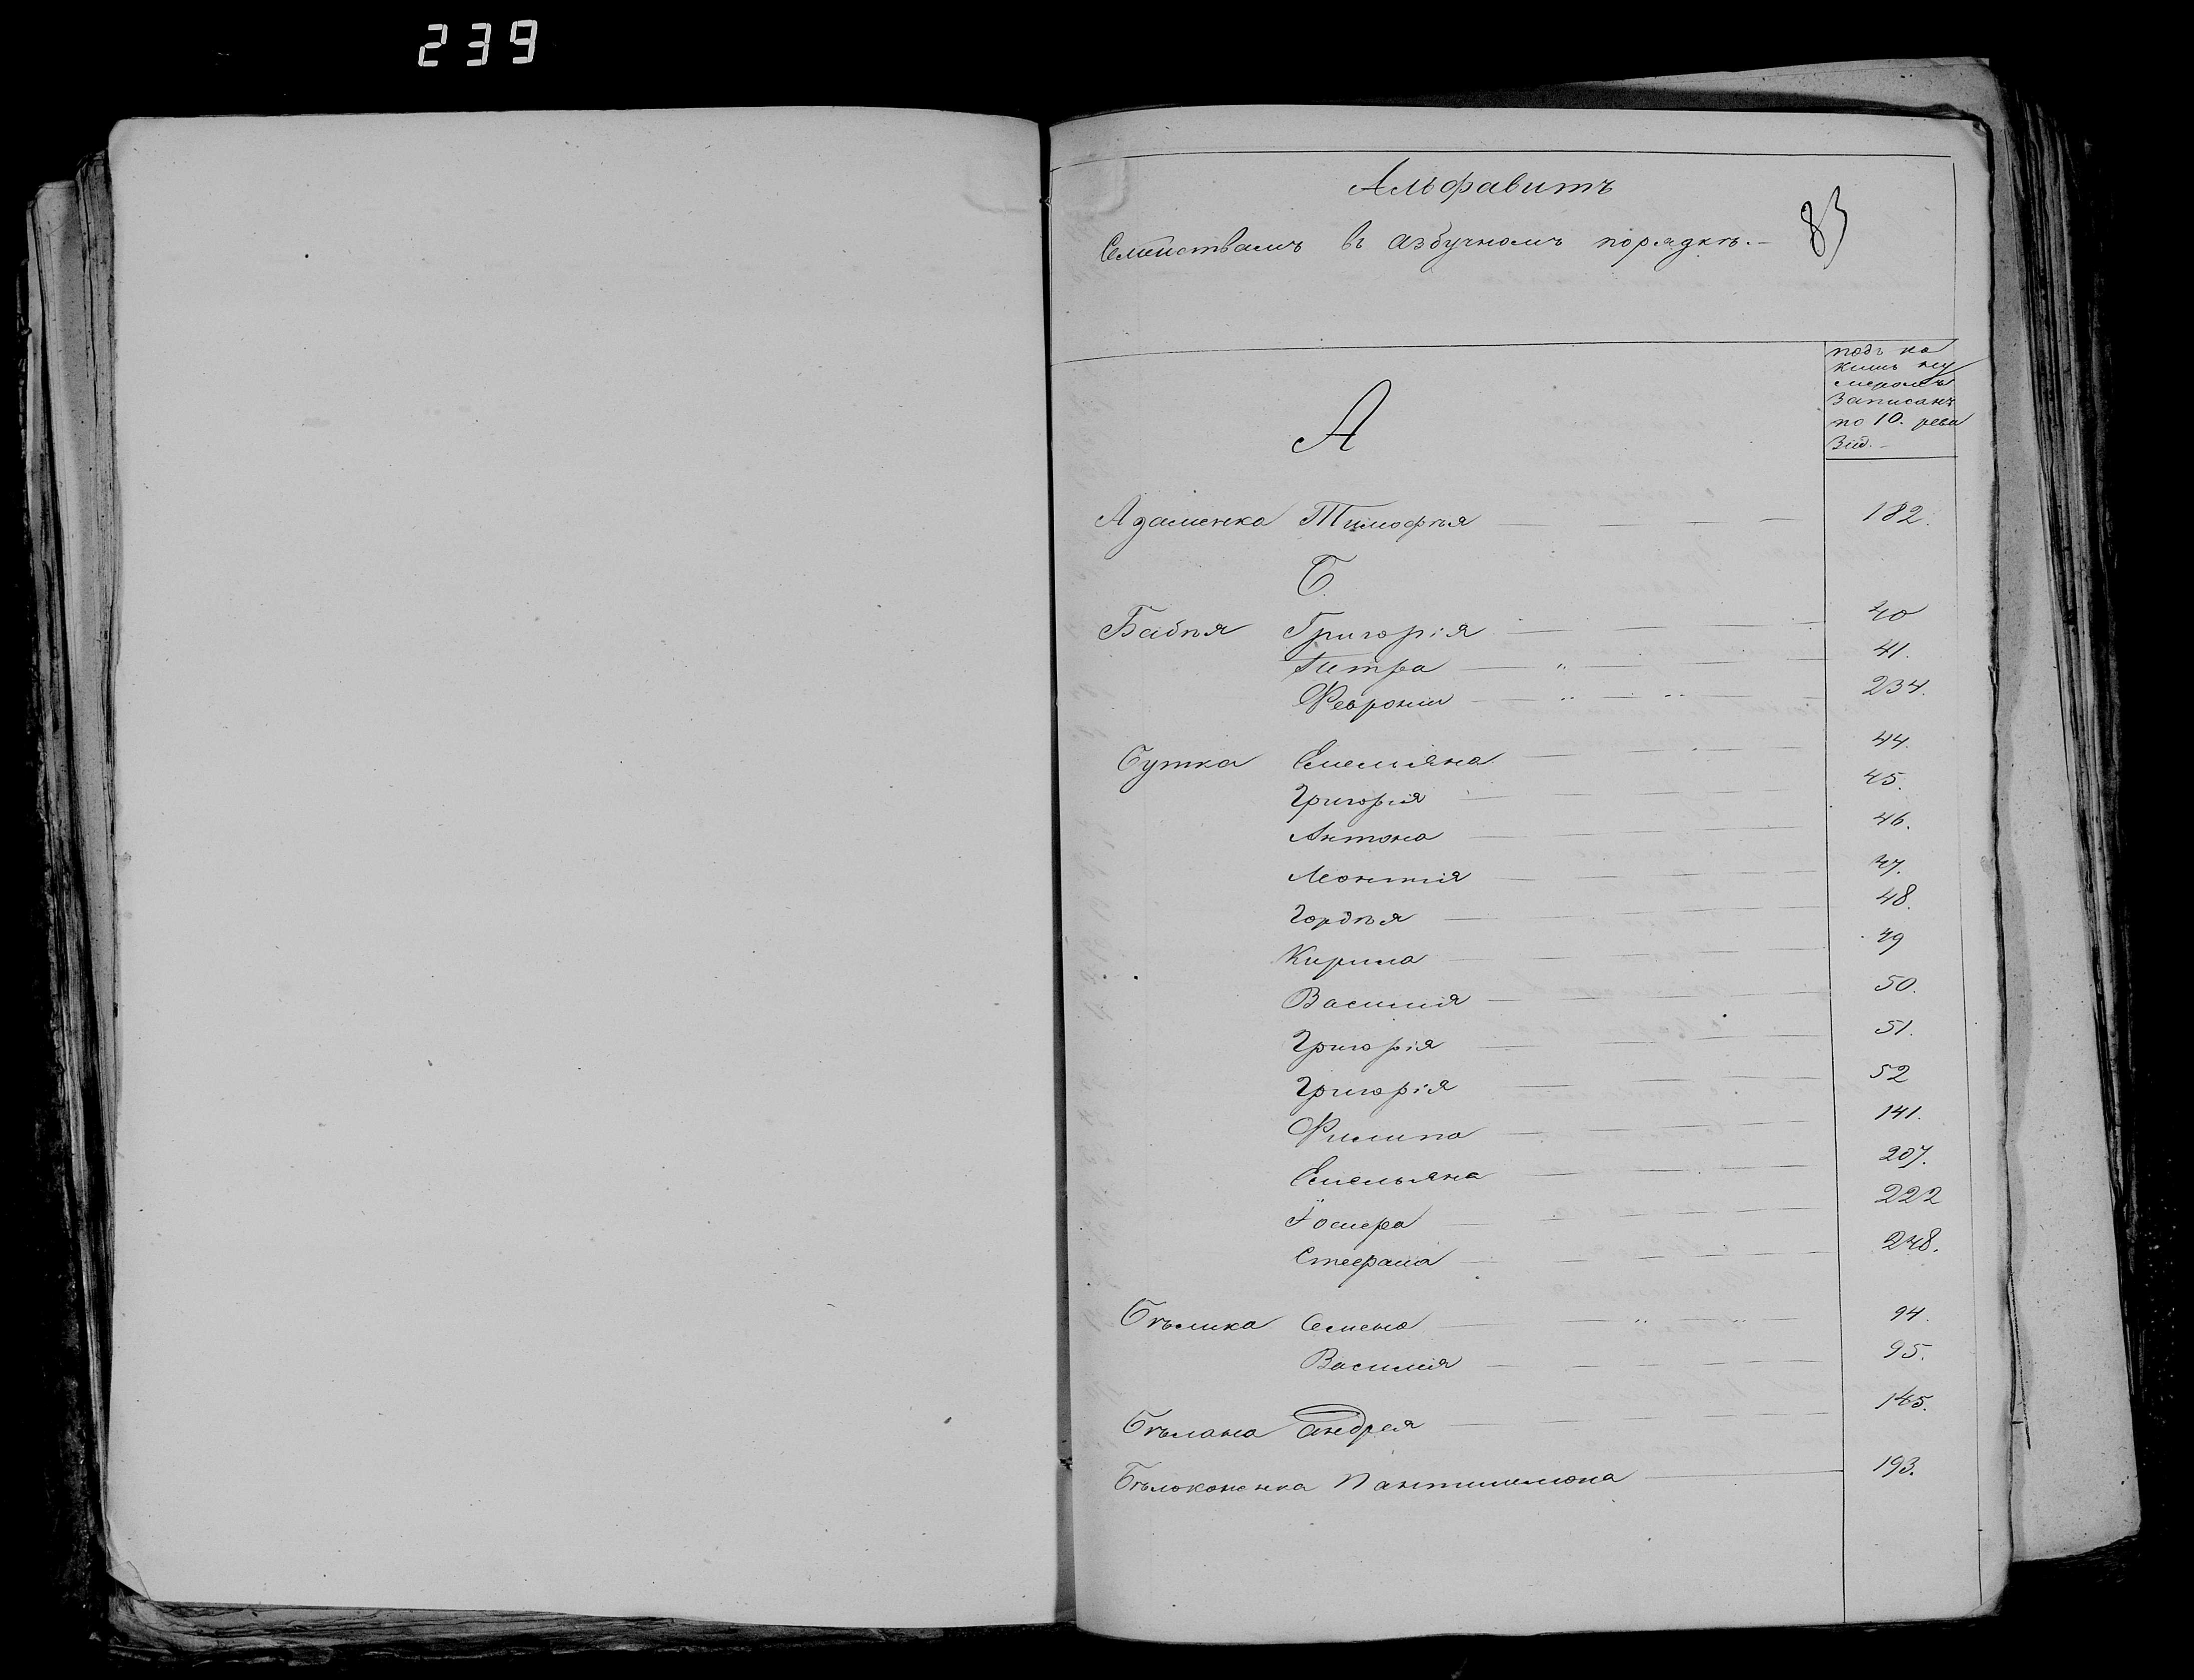 239
Алфавитъ
83
Семействамъ въ азбучномъ порядкѣ.-
подъ ка
кимъ ну
меромъ
Записанъ
по 10. реви
Зіи.-
А
Адаменка Тимофѣя 182.
Б.
Бабѣя Григорія 40
Петра " 41.
Февронии " " 234.
Бутка Емелияна 44.
Григорія 45.
Антона 46.
Леонтія 47.
Гордѣя 48.
Кирила 49
Василія 50.
Григорія 51.
Григорія 52
Филипа 141.
Емельяна 207.
Іосифа 222
Стефана 248.
Бѣлика Семена " " 94.
Василія 95.
Бѣлана Андрея 145.
Бѣлоконенка Пантилимона 193.